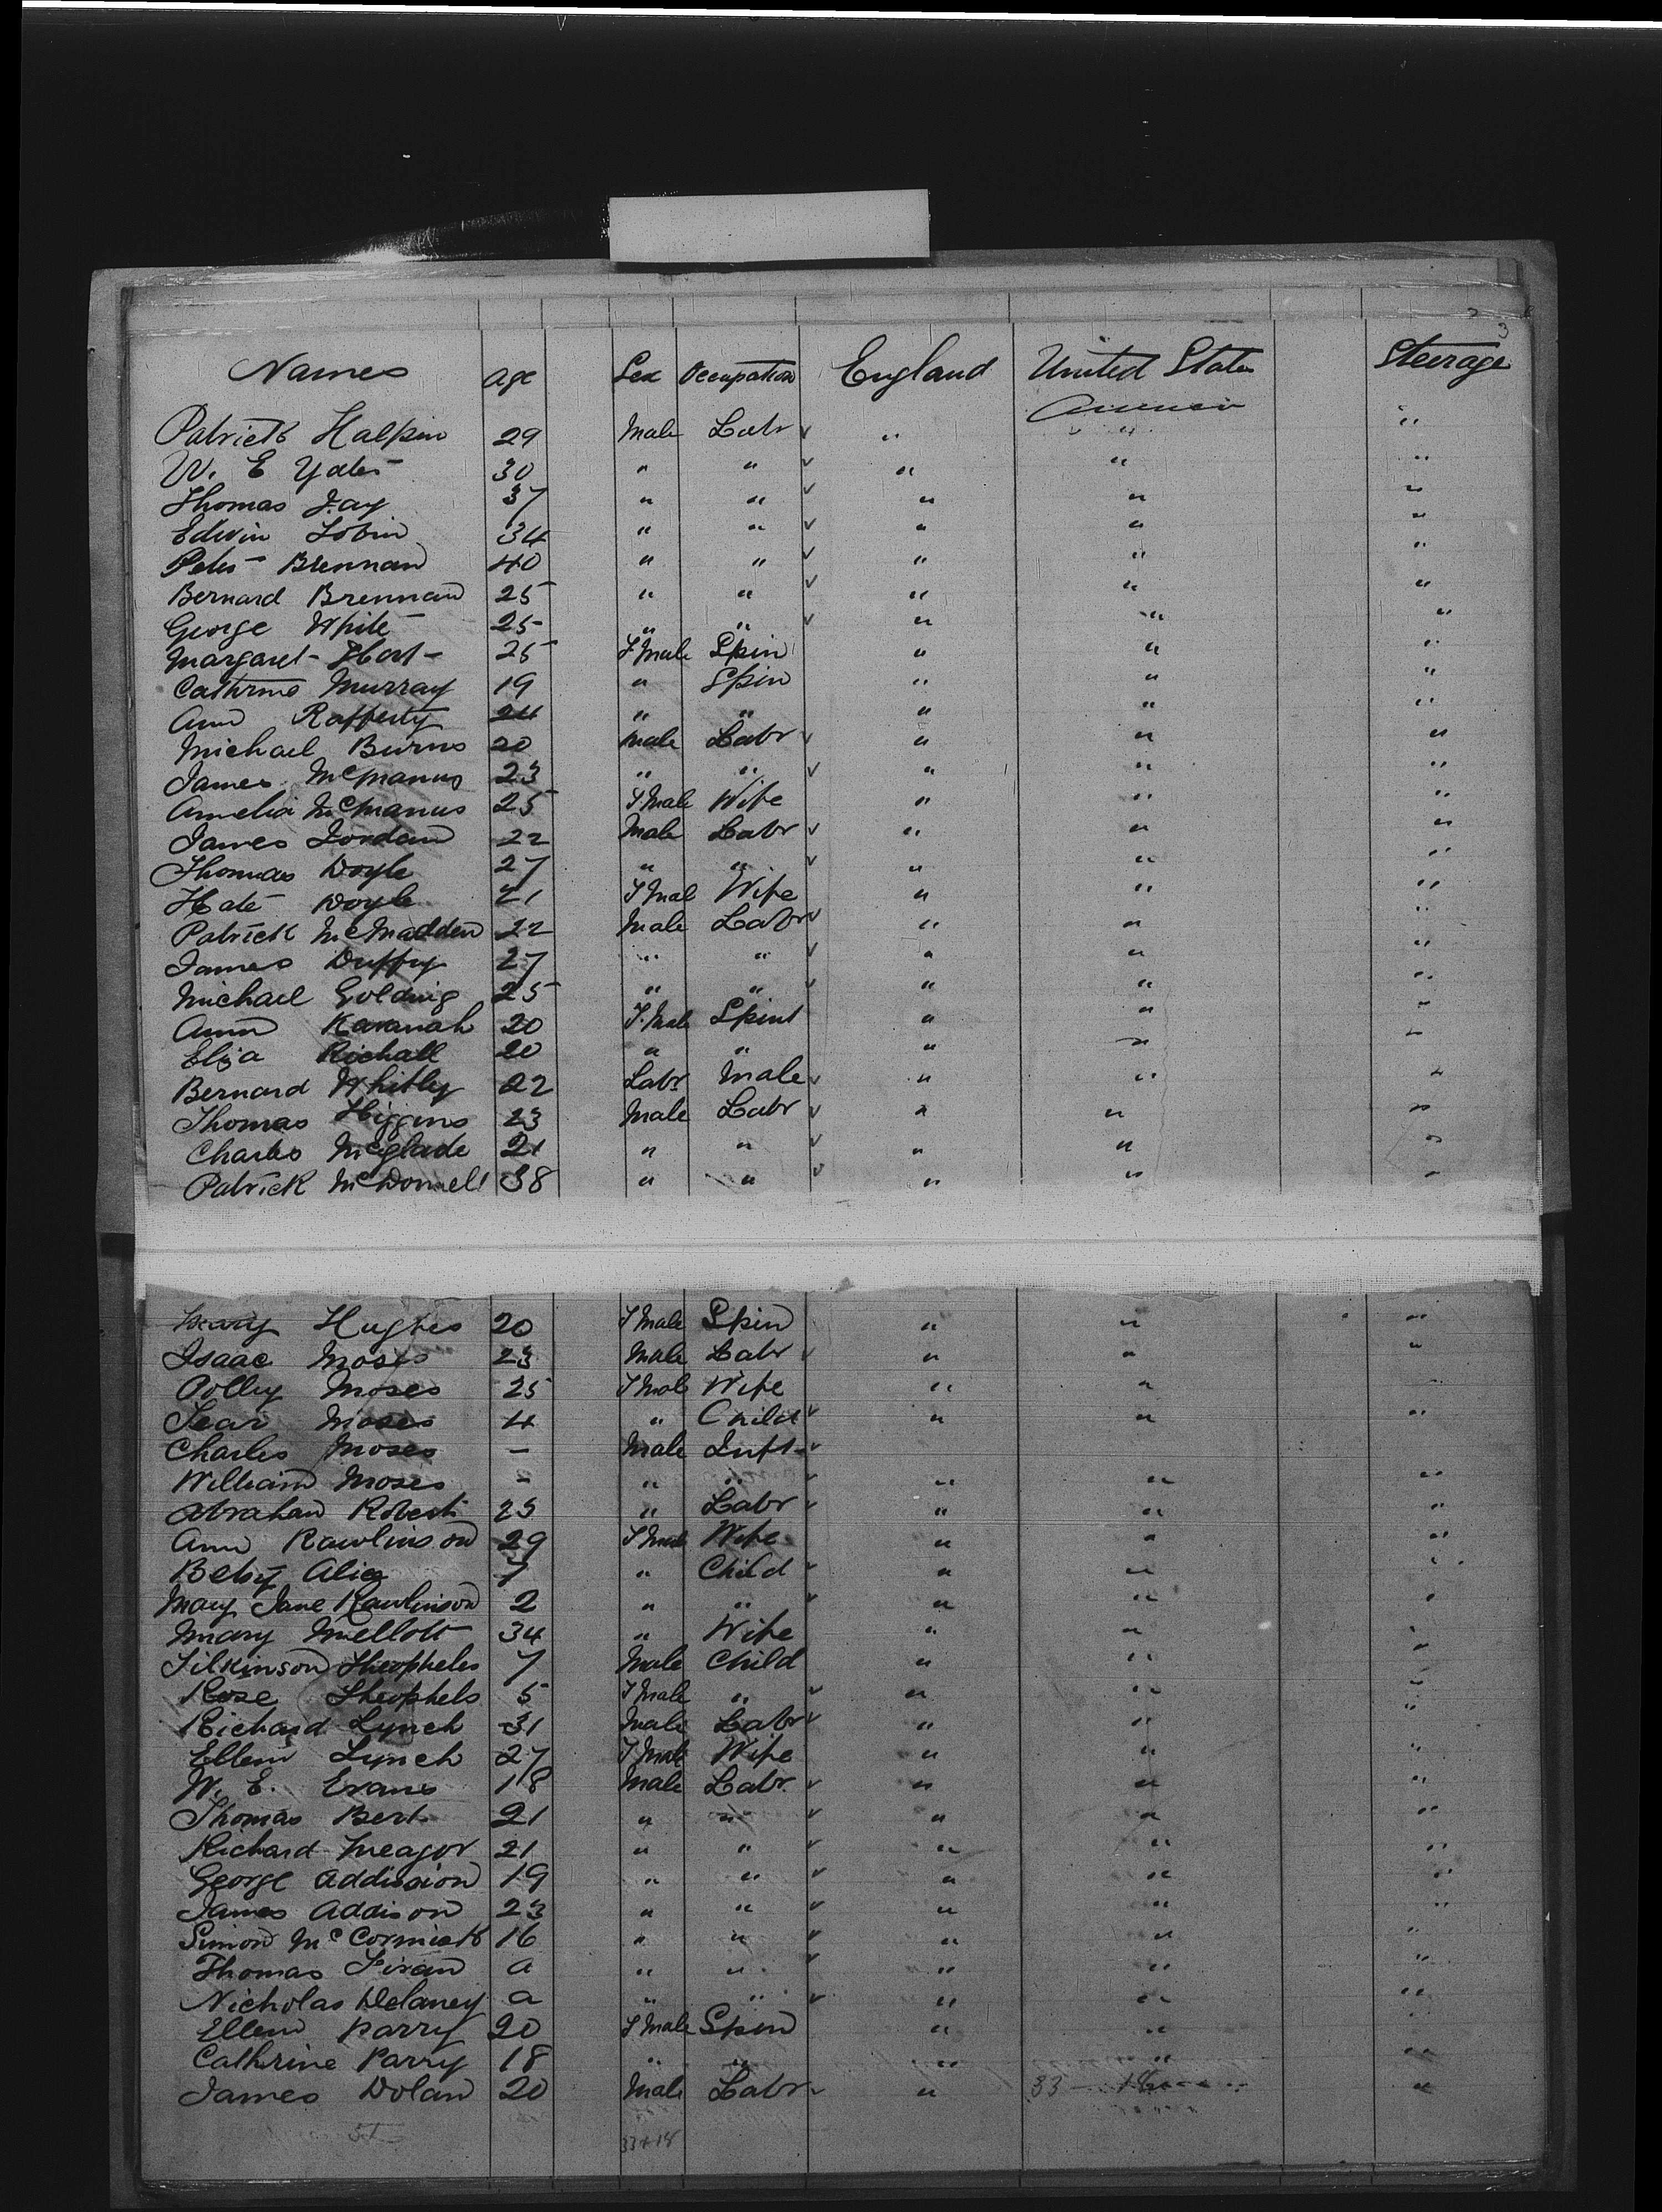 3
Names Age Sex Occupation England United States Steerage
America
Patrick Halpin 29 Male Labr ✓ " " "
W. E Yates 30 " " ✓ " " "
Thomas Fay 37 " " ✓ " " "
Edwin Tobin 34 " " ✓ " " "
Peter Brennan 40 " " ✓ " " "
Bernard Brennan 25 " " ✓ " " "
George White 25 " " ✓ " " "
Margaret 25 F Male Spin " " "
Cathrine Murray 19 " Spin " " "
Ann Rafferty 24 " " " " "
Michael Burns 20 Male Labr ✓ " " "
James McManus 23 " " ✓ " " "
Amelia McManus 25 F Male Wife " " "
James Jordan 22 Male Labr ✓ " " "
Thomas Doyle 27 " " ✓ " " "
Kate Doyle 21 F Mal Wife " " "
Patrick McMadden 22 Male Labr ✓ " " "
James Duffy 27 " " ✓ " " "
Michael Golding 25 " " ✓ " " "
Ann Kavanah 20 F. Male Spins " " "
Eliza Richall 20 " " " " "
Bernard Whitley 22 Labr Male ✓ " " "
Thomas Higgins 23 Male Labr ✓ " " "
Charles McGlade 21 " " ✓ " " "
Patrick McDonnell 38 " " ✓ " " "
Mary Hughes 20 F Male Spin " " "
Isaac Moses 23 Male Labr ✓ " " "
Polley Moses 25 F Male Wife " " "
Moses 4 " Child ✓ " " "
Charles Moses - Male Inft ✓
William Moses - " " ✓ " " "
Abraham Roberts 25 " Labr ✓ " " "
Ann Rawlinson 29 F Male Wife " " "
Betsy Alice 7 " Child ✓ " " "
Mary Jane Rawlinson 2 " " ✓ " " "
Mary Mellott 34 " Wife " " "
Theopheles 7 Male Child " " "
Rose Theophels 5 F Male " ✓ " " "
Richard Lynch 31 Male Labr ✓ " " "
Ellen Lynch 27 F Male Wife " " "
W. E. Evans 18 Male Labr. ✓ " " "
Thomas Bert 21 " " ✓ " " "
Richard Meagor 21 " " ✓ " " "
George Addission 19 " " ✓ " " "
James Addison 23 " " ✓ " " "
Simon McCormick 16 " " ✓ " " "
Thomas a " " ✓ " " "
Nicholas Delaney a " " ✓ " " "
Ellen Parry 20 F Male Spin " " "
Cathrine Parry 18 " " " " "
James Dolan 20 Male Labr ✓ " 33 18 "
51 33+18